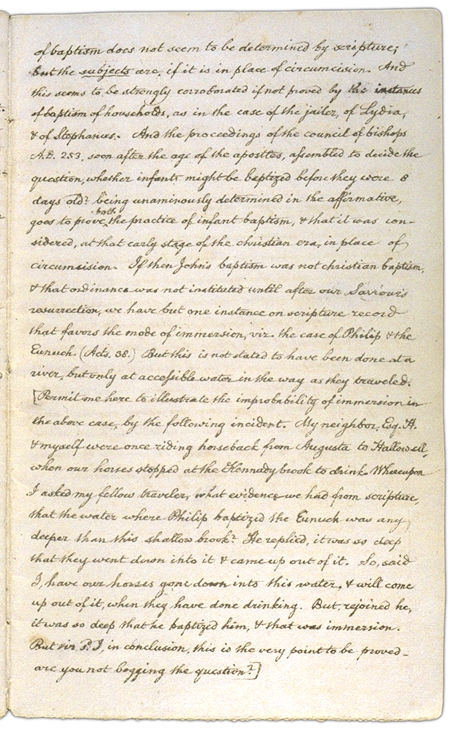 of baptism does not seem to be determined by scripture;
but the subjects are, if it is in place of circumcision. And
this seems to be strongly corroborated if not proved by the instances
of baptism of households, as in the case of the jailer, of Lydia,
& of Stephanus. And the proceedings of the council of bishops
A.D. 253, soon after the age of the apostles, assembled to decide the
question, whether infants might be baptized before they were 8
days old? being unaminously determined in the affirmative,
both
goes to prove the practice of infant baptism, & that it was con-
sidered, at that early stage of the christian era, in place of
circumsision. If then John's baptism was not christian baptism,
& that ordinance was not instituted until after our Saviour's
resurrection, we have but one instance on scripture record
that favors the mode of immersion, viz. the case of Philip & the
Eunuch. (Acts. 38.) But this is not stated to have been done at a
river, but only at accessible water in the way as they traveled.
[Permit me here to illustrate the improbability of immersion in
the above case, by the following incident. My neighbor, Esq. H.
& myself were once riding horseback from Augusta to Hallowell,
when our horses stopped at the Kennedy brook to drink. Whereupon
I asked my fellow traveler, what evidence we had from scripture,
that the water where Philip baptized the Eunuch was any
deeper than this shallow brook? He replied, it was so deep
that they went down into it & came up out of it. So, said
I, have our horses gone down into this water, & will come
up out of it, when they have done drinking. But, rejoined he,
it was so deep that he baptized him, & that was immersion.
But sir, P. I, in conclusion, this is the very point to be proved–
are you not begging the question?]